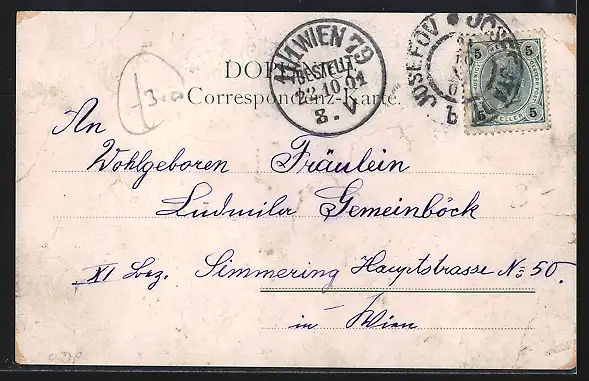 WIEN 79
BESTELLT
22.10.01
8.V
JOSEFOV
5 5
5 5
Correspondenz-Karte.
An
Wohlgeboren Fräulein
Ludmila Gemeinböck
XI Bez. Simmering Hauptstrasse No 50.
in Wien